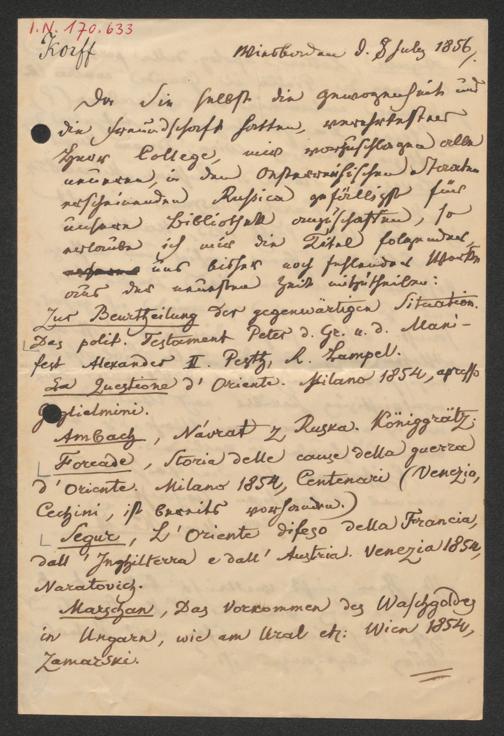 I.N. 170.633
Korff
Wiesbaden d. 8 July 1856/.
Da Sie selbst die Gewogenheit und
die Freundschaft hatten, verehrtester
Herr College, mir vorzuschlagen alle
neueren, in den Oesterreichischen Staaten
erscheinenden Russica gefälligst für
unsere Bibliothek anzuschaffen, so
erlaube ich mir die Titel folgender,
uns bisher noch fehlender Werke
aus der neuesten Zeit mitzutheilen:
Zur Beurtheilung der gegenwärtigen Situation.
Das polit. Testament Peter d. Gr. u. d. Mani-
fest Alexander II. Pesth, R. Lampel.
La Questione d'Oriente. Milano 1854, apresso
Guglielmini.
Ambach, Návrat z Ruska. Königgrätz.
Forcade, Storia delle cause della guerra
d'Oriente. Milano 1854, Centenari (Venezia,
Cecchini, ist bereits vorhanden.)
Segur, L'Oriente difeso della Francia,
dall' Inghilterra e dall' Austria. Venezia 1854,
Naratovich.
Marschan, Das Vorkommen des Waschgoldes
in Ungarn, wie am Ural etc: Wien 1854,
Zamarski.